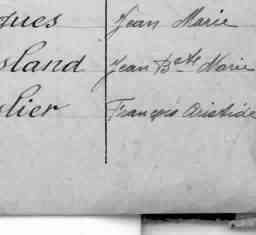 ques Jean Marie
sland Jean Bte Marie
lier François Aristide